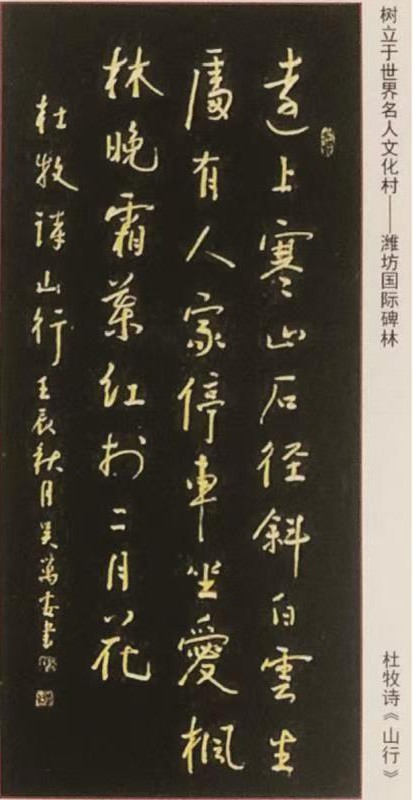 树立于世界名人文化村——潍坊国际碑林
杜牧诗《山行》
遠上寒山石径斜白雲生
處有人家停車坐愛楓
林晚霜葉红於二月花
杜牧詩山行壬辰秋月吴萬書